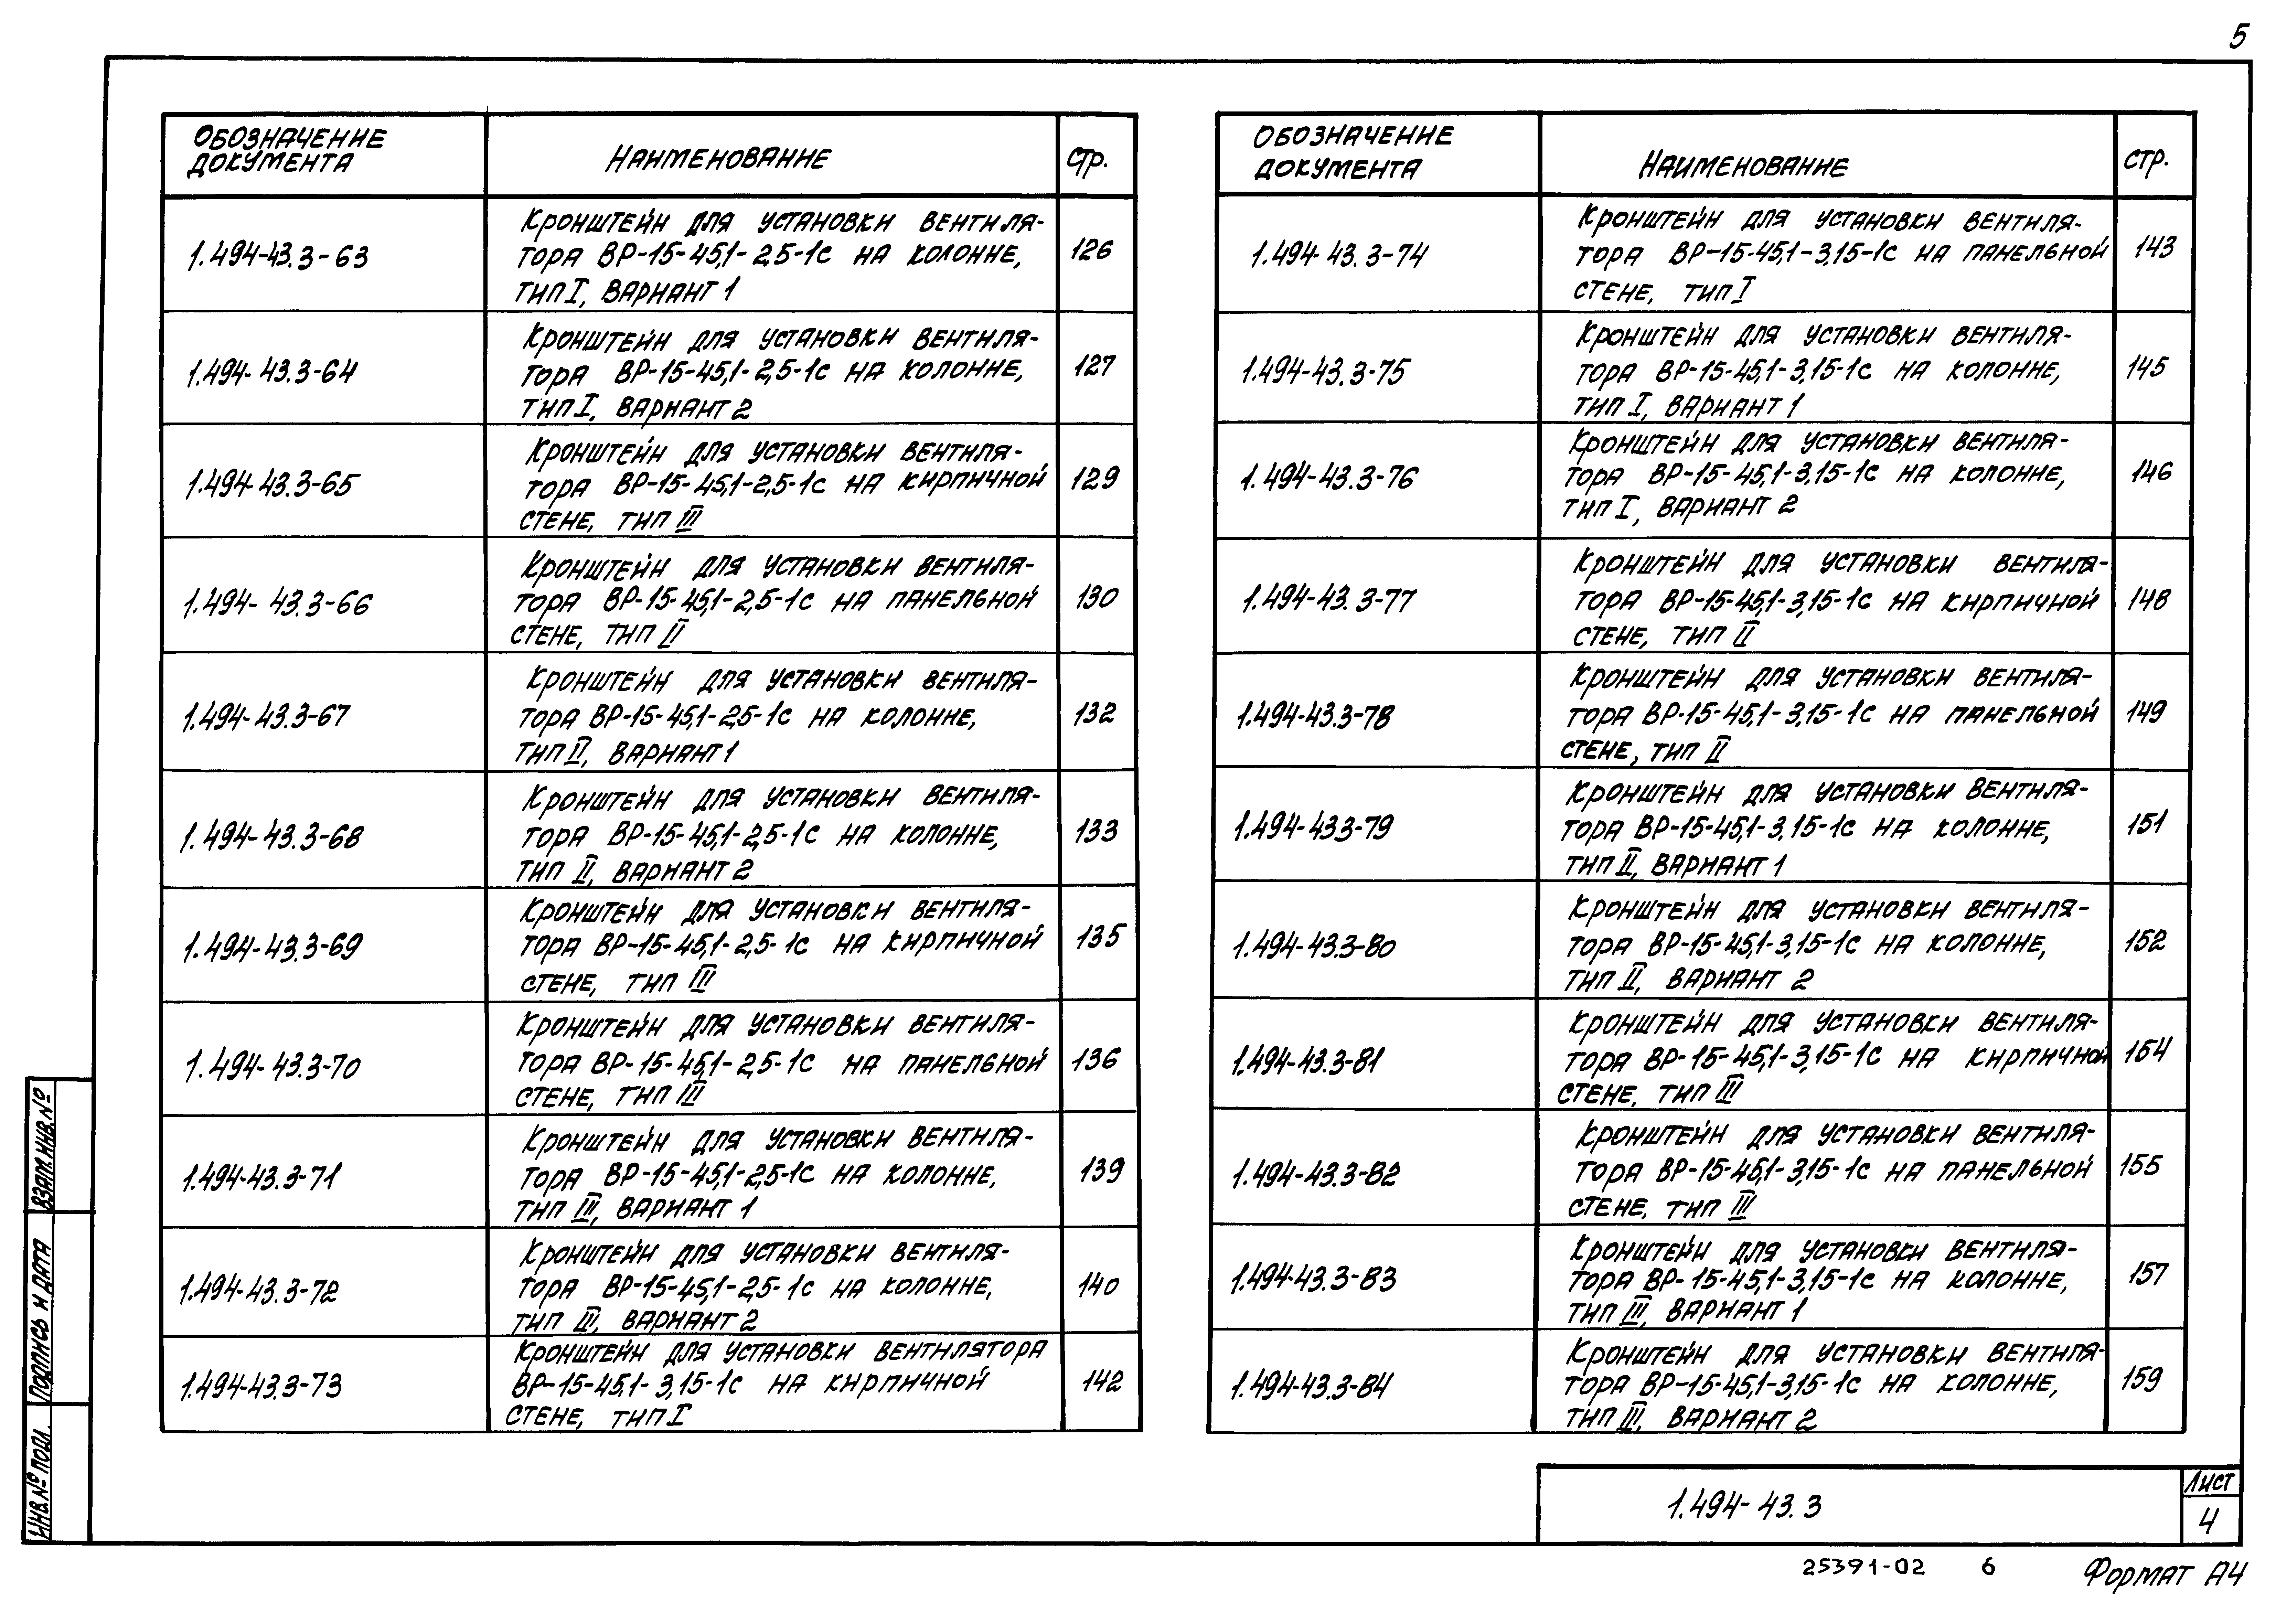 5
ОБОЗНАЧЕНИЕ
ДОКУМЕНТА
НАИМЕНОВАНИЕ
СТР.
1.494-43.3-63
КРОНШТЕЙН ДЛЯ УСТАНОВКИ ВЕНТИЛЯ-
ТОРА ВР-15-45,1-2,5-1С НА КОЛОННЕ,
ТИП I, ВАРИАНТ 1
126
1.494-43.3-64
КРОНШТЕЙН ДЛЯ УСТАНОВКИ ВЕНТИЛЯ-
ТОРА ВР-15-45,1-2,5-1С НА КОЛОННЕ,
ТИП I, ВАРИАНТ 2
127
1.494-43.3-65
КРОНШТЕЙН ДЛЯ УСТАНОВКИ ВЕНТИЛЯ-
ТОРА ВР-15-45,1-2,5-1С НА КИРПИЧНОЙ
СТЕНЕ, ТИП III
129
1.494-43.3-66
КРОНШТЕЙН ДЛЯ УСТАНОВКИ ВЕНТИЛЯ-
ТОРА ВР-15-45,1-2,5-1С НА ПАНЕЛЬНОЙ
СТЕНЕ, ТИП II
130
1.494-43.3-67
КРОНШТЕЙН ДЛЯ УСТАНОВКИ ВЕНТИЛЯ-
ТОРА ВР-15-45,1-2,5-1С НА КОЛОННЕ,
ТИП II, ВАРИАНТ 1
132
1.494-43.3-68
КРОНШТЕЙН ДЛЯ УСТАНОВКИ ВЕНТИЛЯ-
ТОРА ВР-15-45,1-2,5-1С НА КОЛОННЕ,
ТИП II, ВАРИАНТ 2
133
1.494-43.3-69
КРОНШТЕЙН ДЛЯ УСТАНОВКИ ВЕНТИЛЯ-
ТОРА ВР-15-45,1-2,5-1С НА КИРПИЧНОЙ
СТЕНЕ, ТИП III
135
1.494-43.3-70
КРОНШТЕЙН ДЛЯ УСТАНОВКИ ВЕНТИЛЯ-
ТОРА ВР-15-45,1-2,5-1С НА ПАНЕЛЬНОЙ
СТЕНЕ, ТИП III
136
1.494-43.3-71
КРОНШТЕЙН ДЛЯ УСТАНОВКИ ВЕНТИЛЯ-
ТОРА ВР-15-45,1-2,5-1С НА КОЛОННЕ,
ТИП III, ВАРИАНТ 1
139
1.494-43.3-72
КРОНШТЕЙН ДЛЯ УСТАНОВКИ ВЕНТИЛЯ-
ТОРА ВР-15-45,1-2,5-1С НА КОЛОННЕ,
ТИП III, ВАРИАНТ 2
140
1.494-43.3-73
КРОНШТЕЙН ДЛЯ УСТАНОВКИ ВЕНТИЛЯТОРА
ВР-15-45,1-3,15-1С НА КИРПИЧНОЙ
СТЕНЕ, ТИП I
142
ОБОЗНАЧЕНИЕ
ДОКУМЕНТА
НАИМЕНОВАНИЕ
СТР.
1.494-43.3-74
КРОНШТЕЙН ДЛЯ УСТАНОВКИ ВЕНТИЛЯ-
ТОРА ВР-15-45,1-3,15-1С НА ПАНЕЛЬНОЙ
СТЕНЕ, ТИП I
143
1.494-43.3-75
КРОНШТЕЙН ДЛЯ УСТАНОВКИ ВЕНТИЛЯ-
ТОРА ВР-15-45,1-3,15-1С НА КОЛОННЕ,
ТИП I, ВАРИАНТ 1
145
1.494-43.3-76
КРОНШТЕЙН ДЛЯ УСТАНОВКИ ВЕНТИЛЯ-
ТОРА ВР-15-45,1-3,15-1С НА КОЛОННЕ,
ТИП I, ВАРИАНТ 2
146
1.494-43.3-77
КРОНШТЕЙН ДЛЯ УСТАНОВКИ ВЕНТИЛЯ-
ТОРА ВР-15-45,1-3,15-1С НА КИРПИЧНОЙ
СТЕНЕ, ТИП II
148
1.494-43.3-78
КРОНШТЕЙН ДЛЯ УСТАНОВКИ ВЕНТИЛЯ-
ТОРА ВР-15-45,1-3,15-1С НА ПАНЕЛЬНОЙ
СТЕНЕ, ТИП II
149
1.494-433-79
КРОНШТЕЙН ДЛЯ УСТАНОВКИ ВЕНТИЛЯ-
ТОРА ВР-15-45,1-3,15-1С НА КОЛОННЕ,
ТИП II, ВАРИАНТ 1
151
1.494-43.3-80
КРОНШТЕЙН ДЛЯ УСТАНОВКИ ВЕНТИЛЯ-
ТОРА ВР-15-45,1-3,15-1С НА КОЛОННЕ,
ТИП II, ВАРИАНТ 2
152
1.494-43.3-81
КРОНШТЕЙН ДЛЯ УСТАНОВКИ ВЕНТИЛЯ-
ТОРА ВР-15-45,1-3,15-1С НА КИРПИЧНОЙ
СТЕНЕ, ТИП III
154
1.494-43.3-82
КРОНШТЕЙН ДЛЯ УСТАНОВКИ ВЕНТИЛЯ-
ТОРА ВР-15-45,1-3,15-1С НА ПАНЕЛЬНОЙ
СТЕНЕ, ТИП III
155
1.494-43.3-83
КРОНШТЕЙН ДЛЯ УСТАНОВКИ ВЕНТИЛЯ-
ТОРА ВР-15-45,1-3,15-1С НА КОЛОННЕ,
ТИП III, ВАРИАНТ 1
157
1.494-43.3-84
КРОНШТЕЙН ДЛЯ УСТАНОВКИ ВЕНТИЛЯ-
ТОРА ВР-15-45,1-3,15-1С НА КОЛОННЕ,
ТИП III, ВАРИАНТ 2
159
ВЗАМ.ИНВ.№
ПОДПИСЬ И ДАТА
ИНВ.№ ПОДЛ.
1.494-43.3
ЛИСТ
4
25391-02 6
ФОРМАТ А4